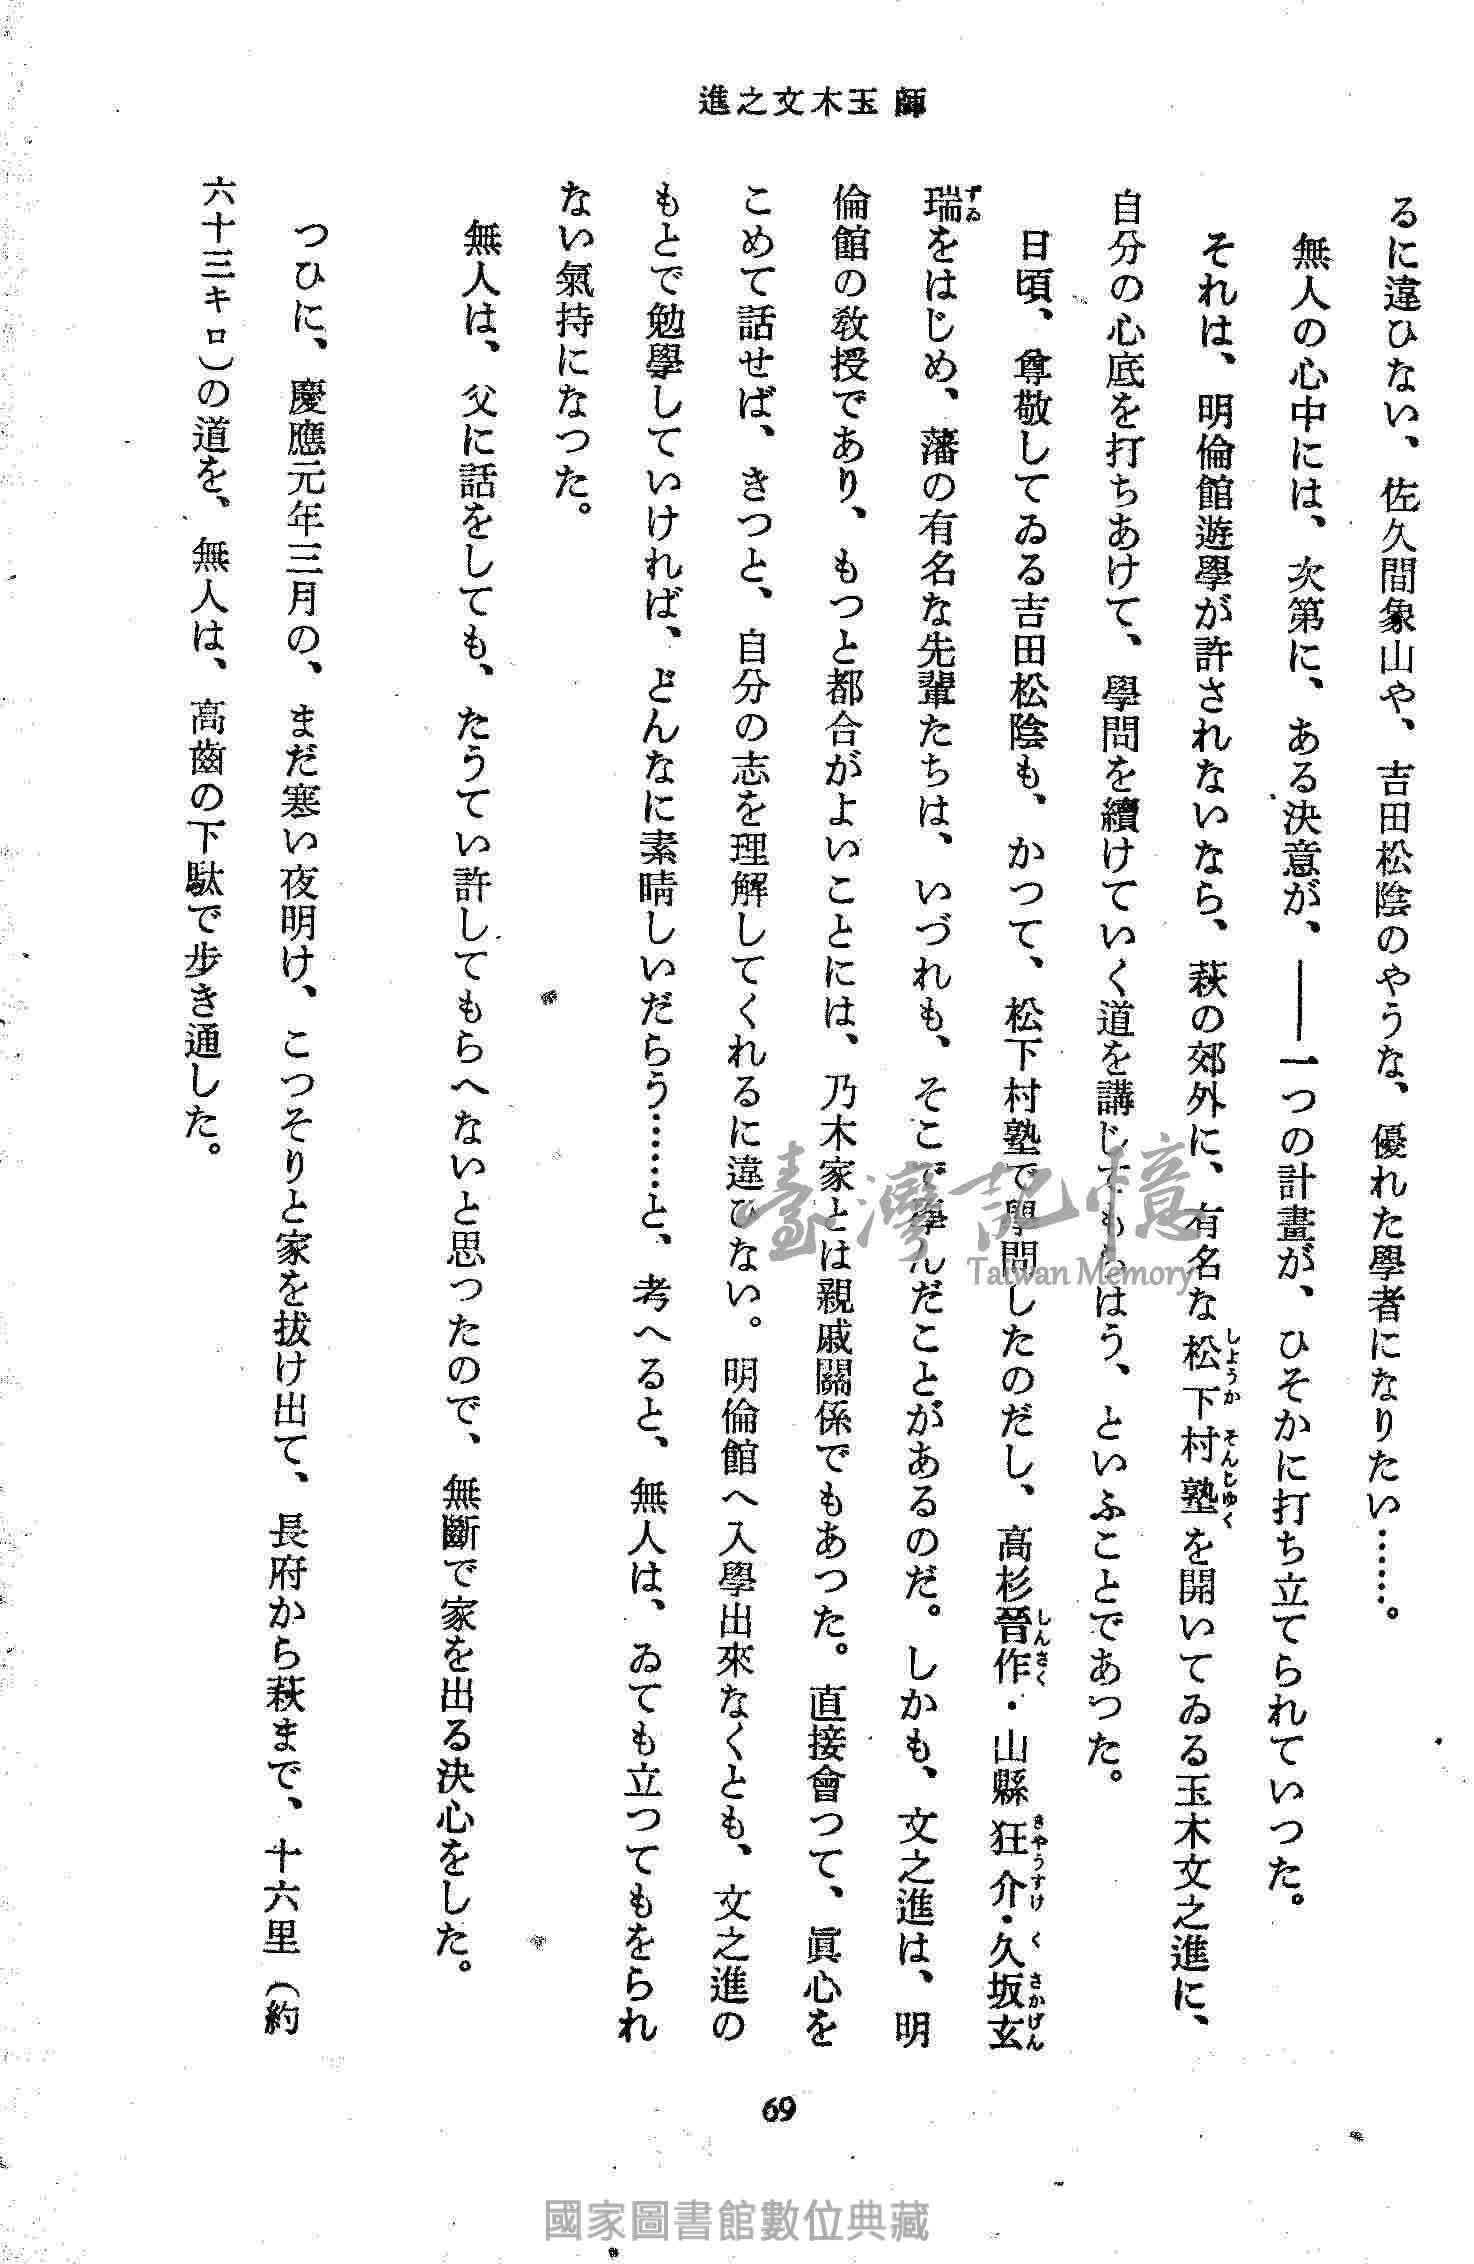 師 玉木文之進
るに違ひない、佐久間象山や、吉田松陰のやうな、優れた學者になりたい……。
無人の心中には、次第に、ある決意が、――一つの計畫が、ひそかに打ち立てられていつた。
それは、明倫館遊學が許されないなら、萩の郊外に、有名な松下村塾を開いてゐる玉木文之進に、
しようか そんじゆく
自分の心底を打ちあけて、學問を續けていく道を講じてもらはう、といふことであつた。
日頃、尊敬してゐる吉田松陰も、かつて、松下村塾で學問したのだし、高杉晉作・山縣狂介・久坂玄
しんさく きやうすけ く さかげん
瑞をはじめ、藩の有名な先輩たちは、いづれも、そこで學んだことがあるのだ。しかも、文之進は、明
ずゐ
倫館の敎授であり、もつと都合がよいことには、乃木家とは親戚關係でもあつた。直接會つて、眞心を
こめて話せば、きつと、自分の志を理解してくれるに違ひない。明倫館へ入學出來なくとも、文之進の
もとで勉學していければ、どんなに素晴しいだらう……と、考へると、無人は、ゐても立つてもをられ
ない氣持になつた。
無人は、父に話をしても、たうてい許してもらへないと思つたので、無斷で家を出る決心をした。
つひに、慶應元年三月の、まだ寒い夜明け、こつそりと家を拔け出て、長府から萩まで、十六里（約
六十三キロ）の道を、無人は、高齒の下駄で步き通した。
69
臺灣記憶
Taiwan Memory
國家圖書館數位典藏